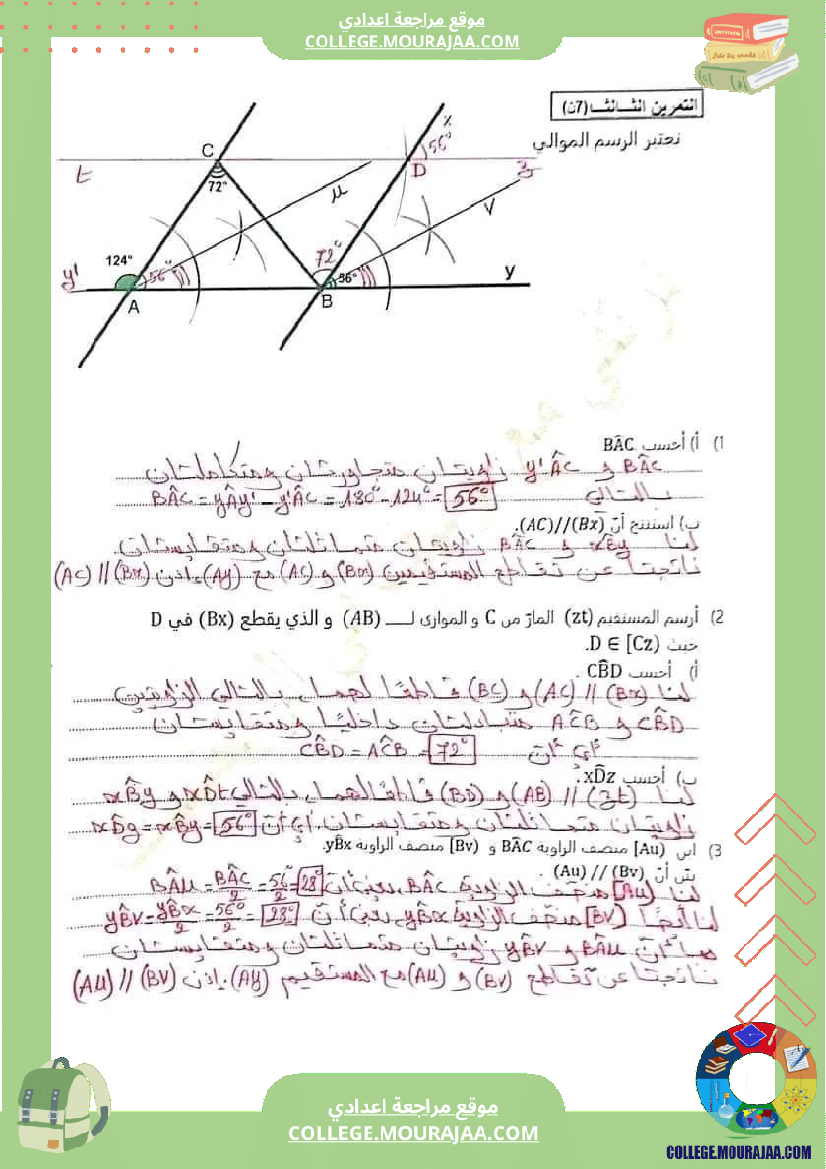 موقع مراجعة اعدادي
COLLEGE.MOURAJAA.COM
التمرين الثالث (7ن)
نعتبر الرسم الموالي
x
56°
C
t
D
z
72°
u
v
124°
72°
y'
56°
56°
y
A
B
1) أ) أحسب BÂC
BÂC و y'ÂC زاويتان متجاورتان ومتكاملتان
بالتالي BÂC = yÂy' - y'ÂC = 180° - 124° = 56°
ب) استنتج أنّ (AC)//(Bx).
لنا xB̂y و BÂC زاويتان متماثلتان ومتقايستان
ناتجتا عن تقاطع المستقيمين (Bx) و (AC) مع (Ay). إذن (AC) // (Bx)
2) أرسم المستقيم (zt) المارّ من C و الموازي لـــــ (AB) و الذي يقطع (Bx) في D
حيث D ∈ [Cz).
أ) أحسب CB̂D .
لنا (Bx) // (AC) و (BC) قاطعًا لهما بالتالي الزاويتين
CB̂D و AĈB متبادلتان داخليا ومتقايستان
أي أنّ CB̂D = AĈB = 72°
ب) أحسب xD̂z .
لنا (zt) // (AB) و (BD) قاطعا لهما بالتالي xD̂z و xB̂y
زاويتان متماثلتان ومتقايستان. أي أنّ xD̂z = xB̂y = 56°
3) ابن [Au) منصف الزاوية BÂC و [Bv) منصف الزاوية yB̂x.
بيّن أنّ (Au) // (Bv) .
لنا [Au) منصّف الزاوية BÂC يعني أنّ BÂu = BÂC/2 = 56°/2 = 28°
لنا أيضًا [Bv) منصّف الزاوية yB̂x يعني أنّ yB̂v = yB̂x/2 = 56°/2 = 28°
بما أنّ BÂu و yB̂v زاويتان متماثلتان ومتقايستان
ناتجتا عن تقاطع (Bv) و (Au) مع المستقيم (Ay). إذن (Au) // (Bv)
موقع مراجعة اعدادي
COLLEGE.MOURAJAA.COM
COLLEGE.MOURAJAA.COM